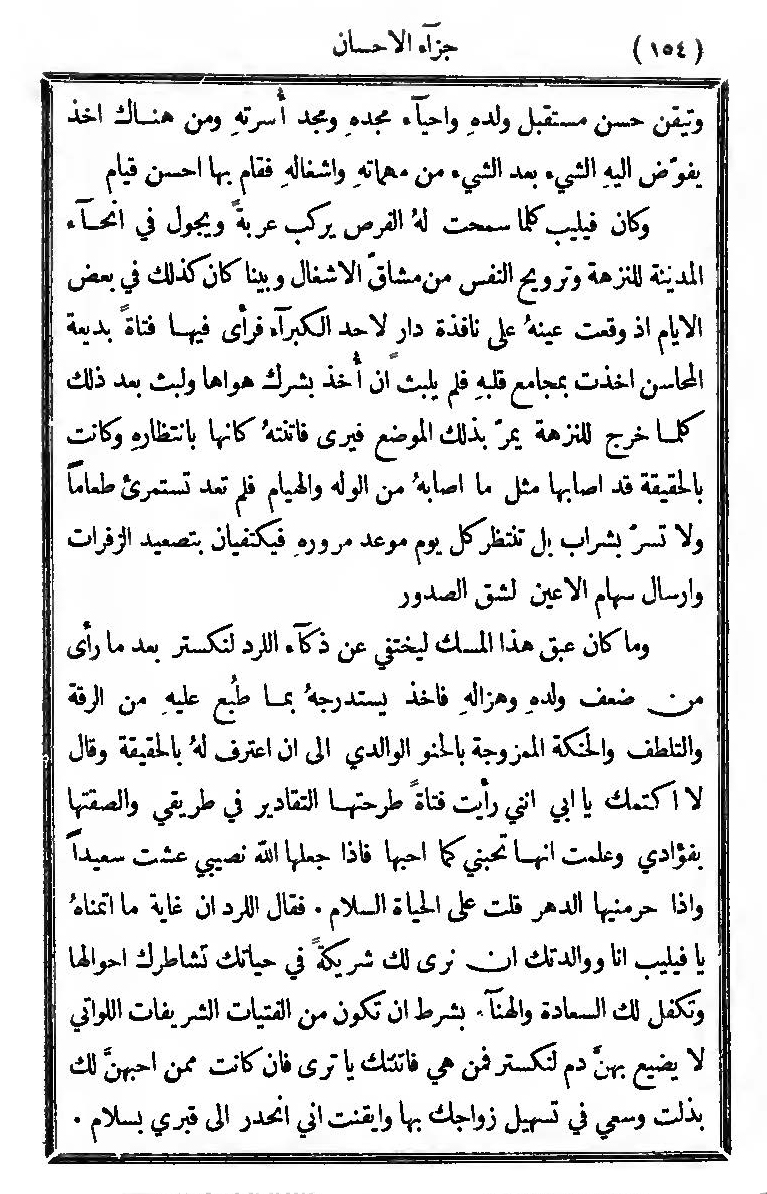 (١٥٤) جزآء الاحسان
وتيقن حسن مستقبل ولدهِ واحيآء مجدهِ ومجد أُسرتهِ ومن هناك اخذ
يفوّض اليهِ الشيء بعد الشيء من مهماتهِ واشغالهِ فقام بها احسن قيام
وكان فيليب كلما سمحت لهُ الفرص يركب عربةً ويجول في انحآء
المدينة للنزهة وترويح النفس من مشاقّ الاشغال وبينا كان كذلك في بعض
الايام اذ وقعت عينهُ على نافذة دار لاحد الكبرآء فرأى فيها فتاةً بديعة
المحاسن اخذت بمجامع قلبهِ فلم يلبث ان أُخذ بشرك هواها ولبث بعد ذلك
كلما خرج للنزهة يمرّ بذلك الموضع فيرى فاتنتهُ كانها بانتظارهِ وكانت
بالحقيقة قد اصابها مثل ما اصابهُ من الوله والهيام فلم تعد تستمرئ طعاماً
ولا تسرّ بشراب بل تنتظر كل يوم موعد مرورهِ فيكتفيان بتصعيد الزفرات
وارسال سهام الاعين لشق الصدور
وما كان عبق هذا المسك ليختفي عن ذكآء اللرد لنكستر بعد ما رأى
من ضعف ولدهِ وهزالهِ فاخذ يستدرجهُ بما طُبع عليهِ من الرقة
والتلطف والحنكة الممزوجة بالحنو الوالدي الى ان اعترف لهُ بالحقيقة وقال
لا اكتمك يا ابي انني رأيت فتاةً طرحتها التقادير في طريقي والصقتها
بفؤادي وعلمت انها تحبني كما احبها فاذا جعلها الله نصيبي عشت سعيداً
واذا حرمنيها الدهر قلت على الحياة السلام . فقال اللرد ان غاية ما اتمناهُ
يا فيليب انا ووالدتك ان نرى لك شريكةً في حياتك تشاطرك احوالها
وتكفل لك السعادة والهنآء بشرط ان تكون من الفتيات الشريفات اللواتي
لا يضيع بهنَّ دم لنكستر فمن هي فاتنتك يا ترى فان كانت ممن احبهنَّ لك
بذلت وسعي في تسهيل زواجك بها وايقنت اني انحدر الى قبري بسلام .